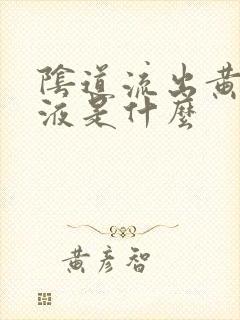 陰道流出黃
液是什麼
黃彥智